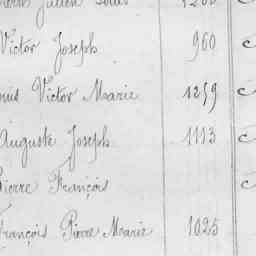 Julien Louis
Victor Joseph 960
Victor Marie 1259
Auguste Joseph 1113
Pierre François
François Pierre Marie 1025